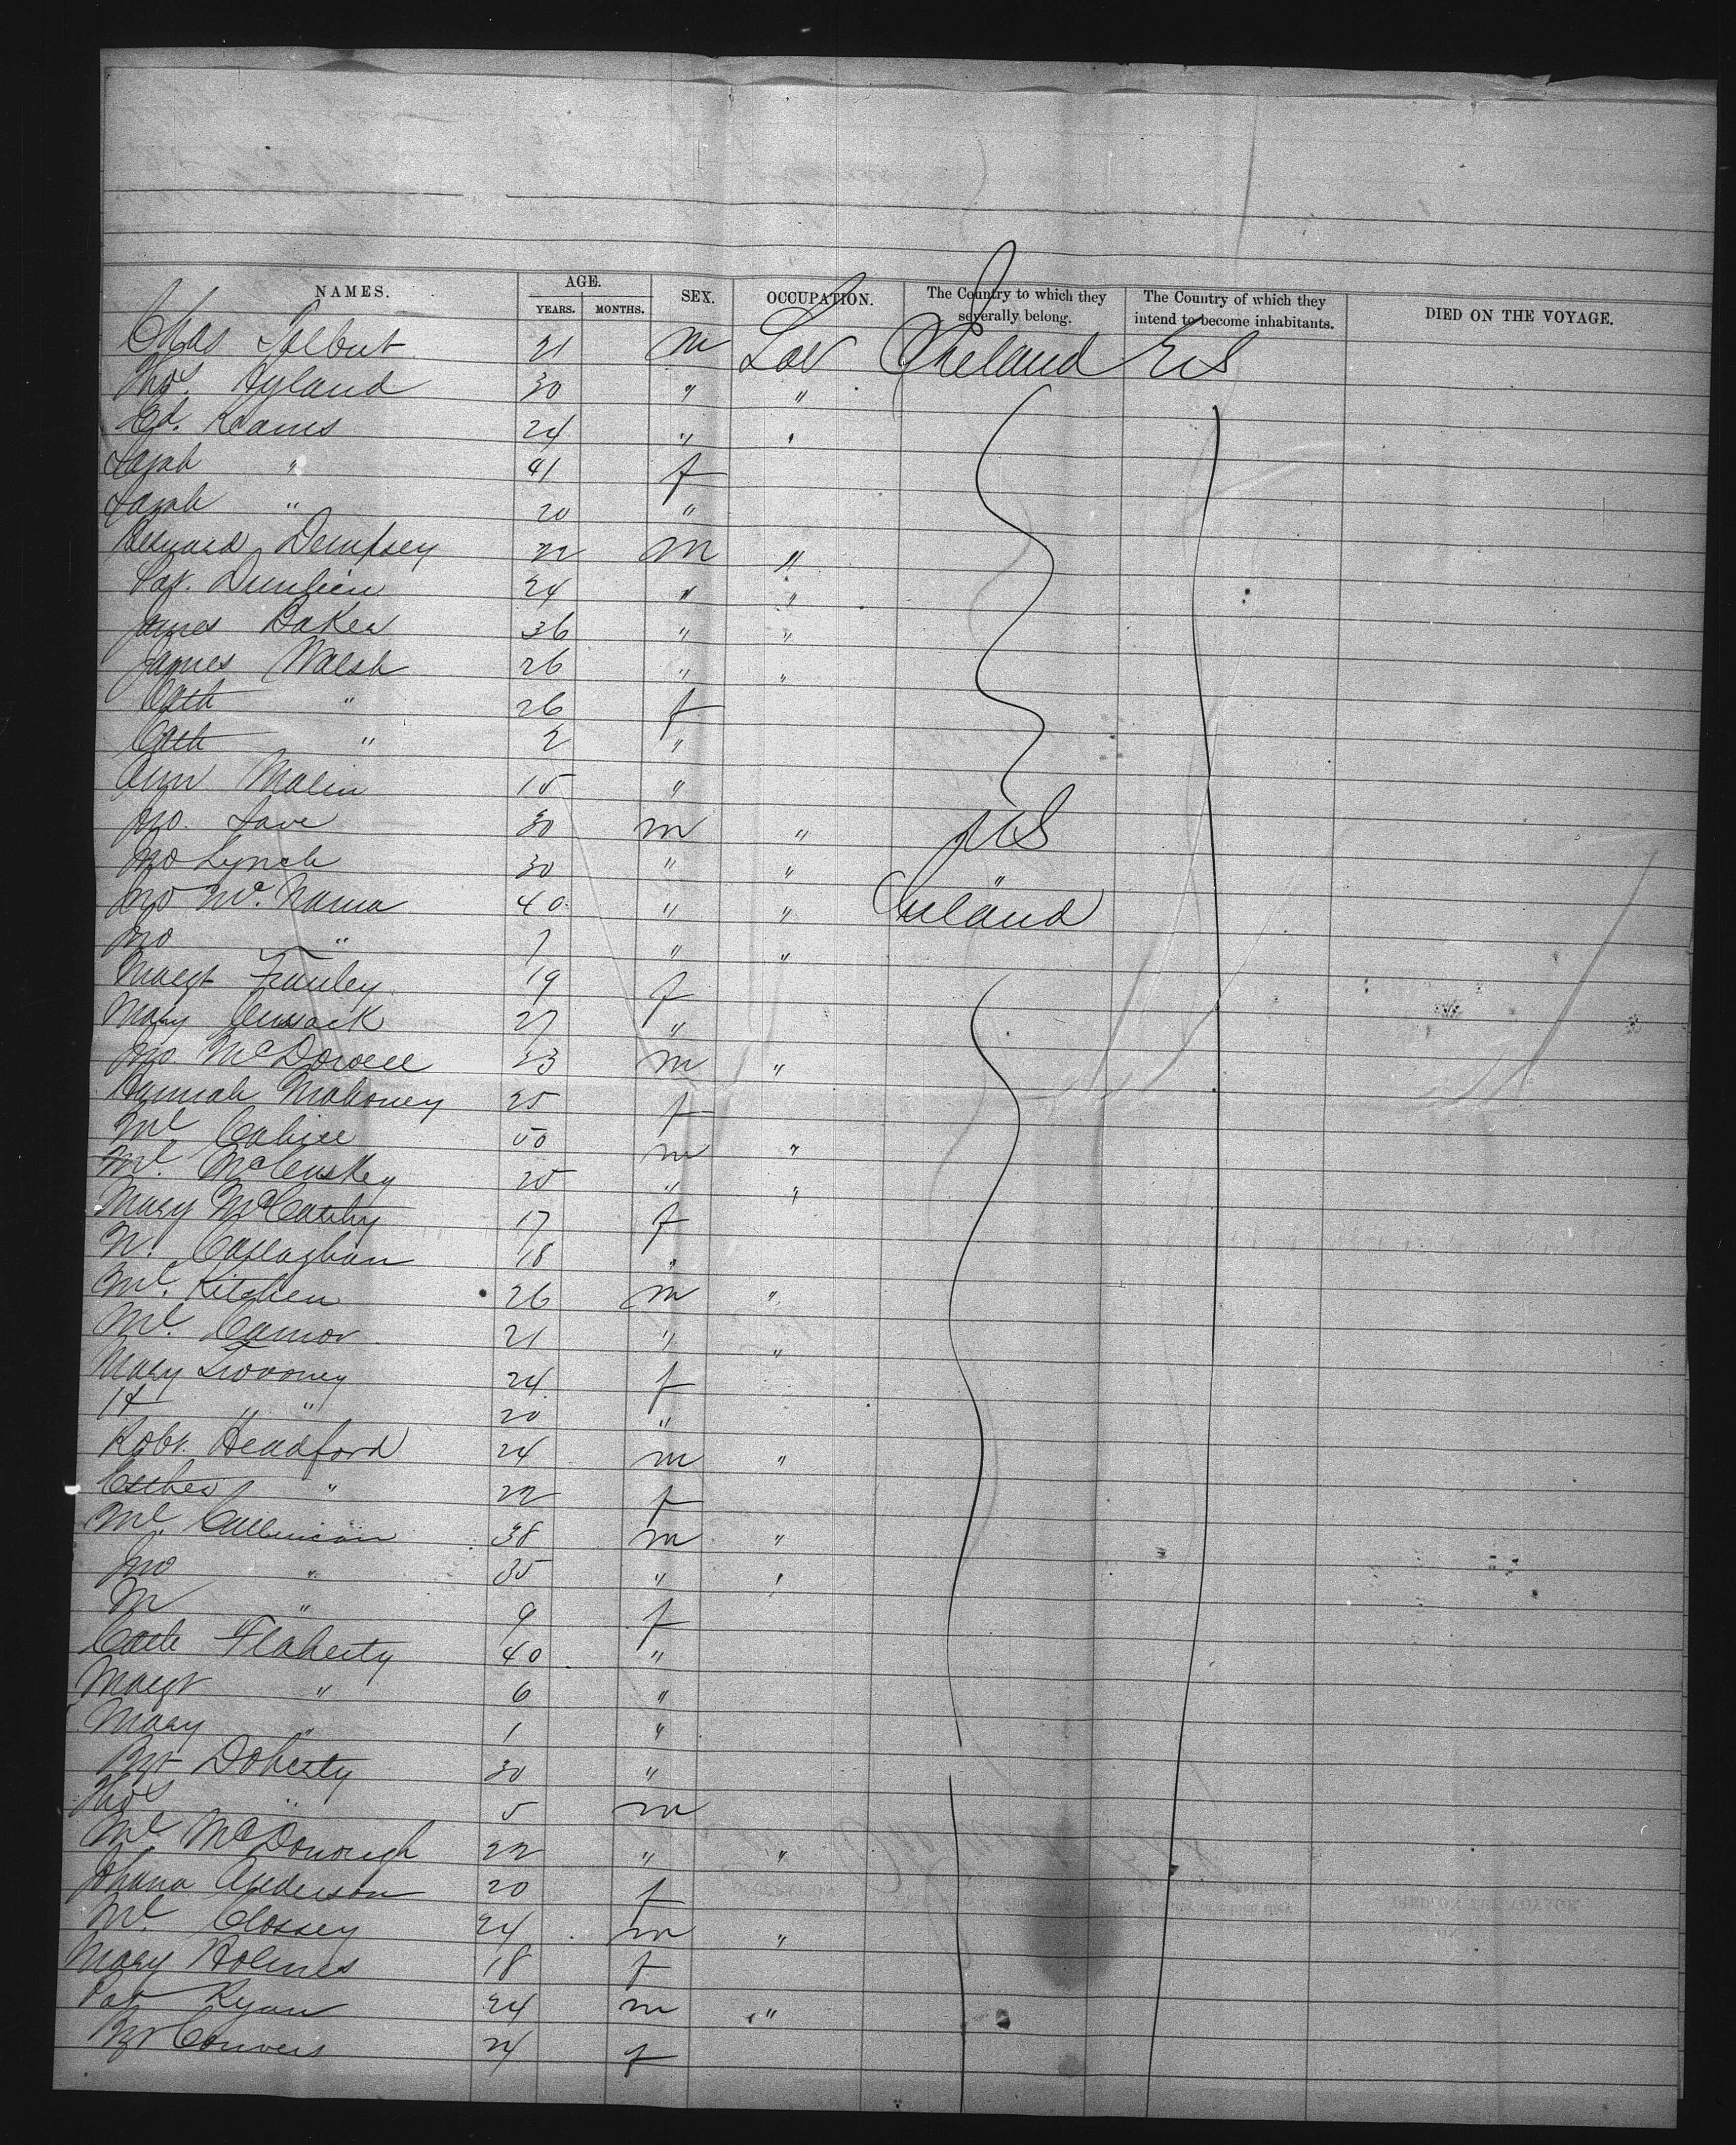 NAMES. AGE. YEARS. MONTHS. SEX. OCCUPATION. The Country to which they severally belong. The Country of which they intend to become inhabitants. DIED ON THE VOYAGE.
Chas Talbut 21 m Lab Ireland US
Thos. Hyland 30 " "
Ed. Keams 24 " "
Sarah " 41 f
Sarah " 20 "
Bernard Dempsey 22 m "
Pat. 24 " "
James Baker 36 " "
James Walsh 26 " "
Cath " 26 f
Cath " 2 "
Ann Malin 15 "
Jno. Lave 30 m " US
Jno Lynch 30 " " "
Jno McNama 40 " " Ireland
Jno " 7 " "
Margt Frawley 19 f
Mary Cussack 27 "
Jno. McDowell 33 m "
Hannah Mahoney 25 f
Ml Cahill 50 m "
Ml. McCluskey 25 " "
Mary McCarthy 17 f
N. Callaghan 18 "
Ml. Kitchen 26 m "
Ml. Connor 21 " "
Mary Twoomey 24 f
H " 20 "
Robt. Headford 24 m "
Esther " 22 f
Ml. Cullinan 38 m "
Jno " 35 " "
M " 9 f
Cath Flaherty 40 "
Margt " 6 "
Mary " 1 "
Bgt Doherty 30 "
Thos " 5 m
Ml McDonough 22 " "
Johana Anderson 20 f
Ml. Clossey 24 m "
Mary Holmes 18 f
Pat Ryan 24 m "
Bgt Convers 24 f